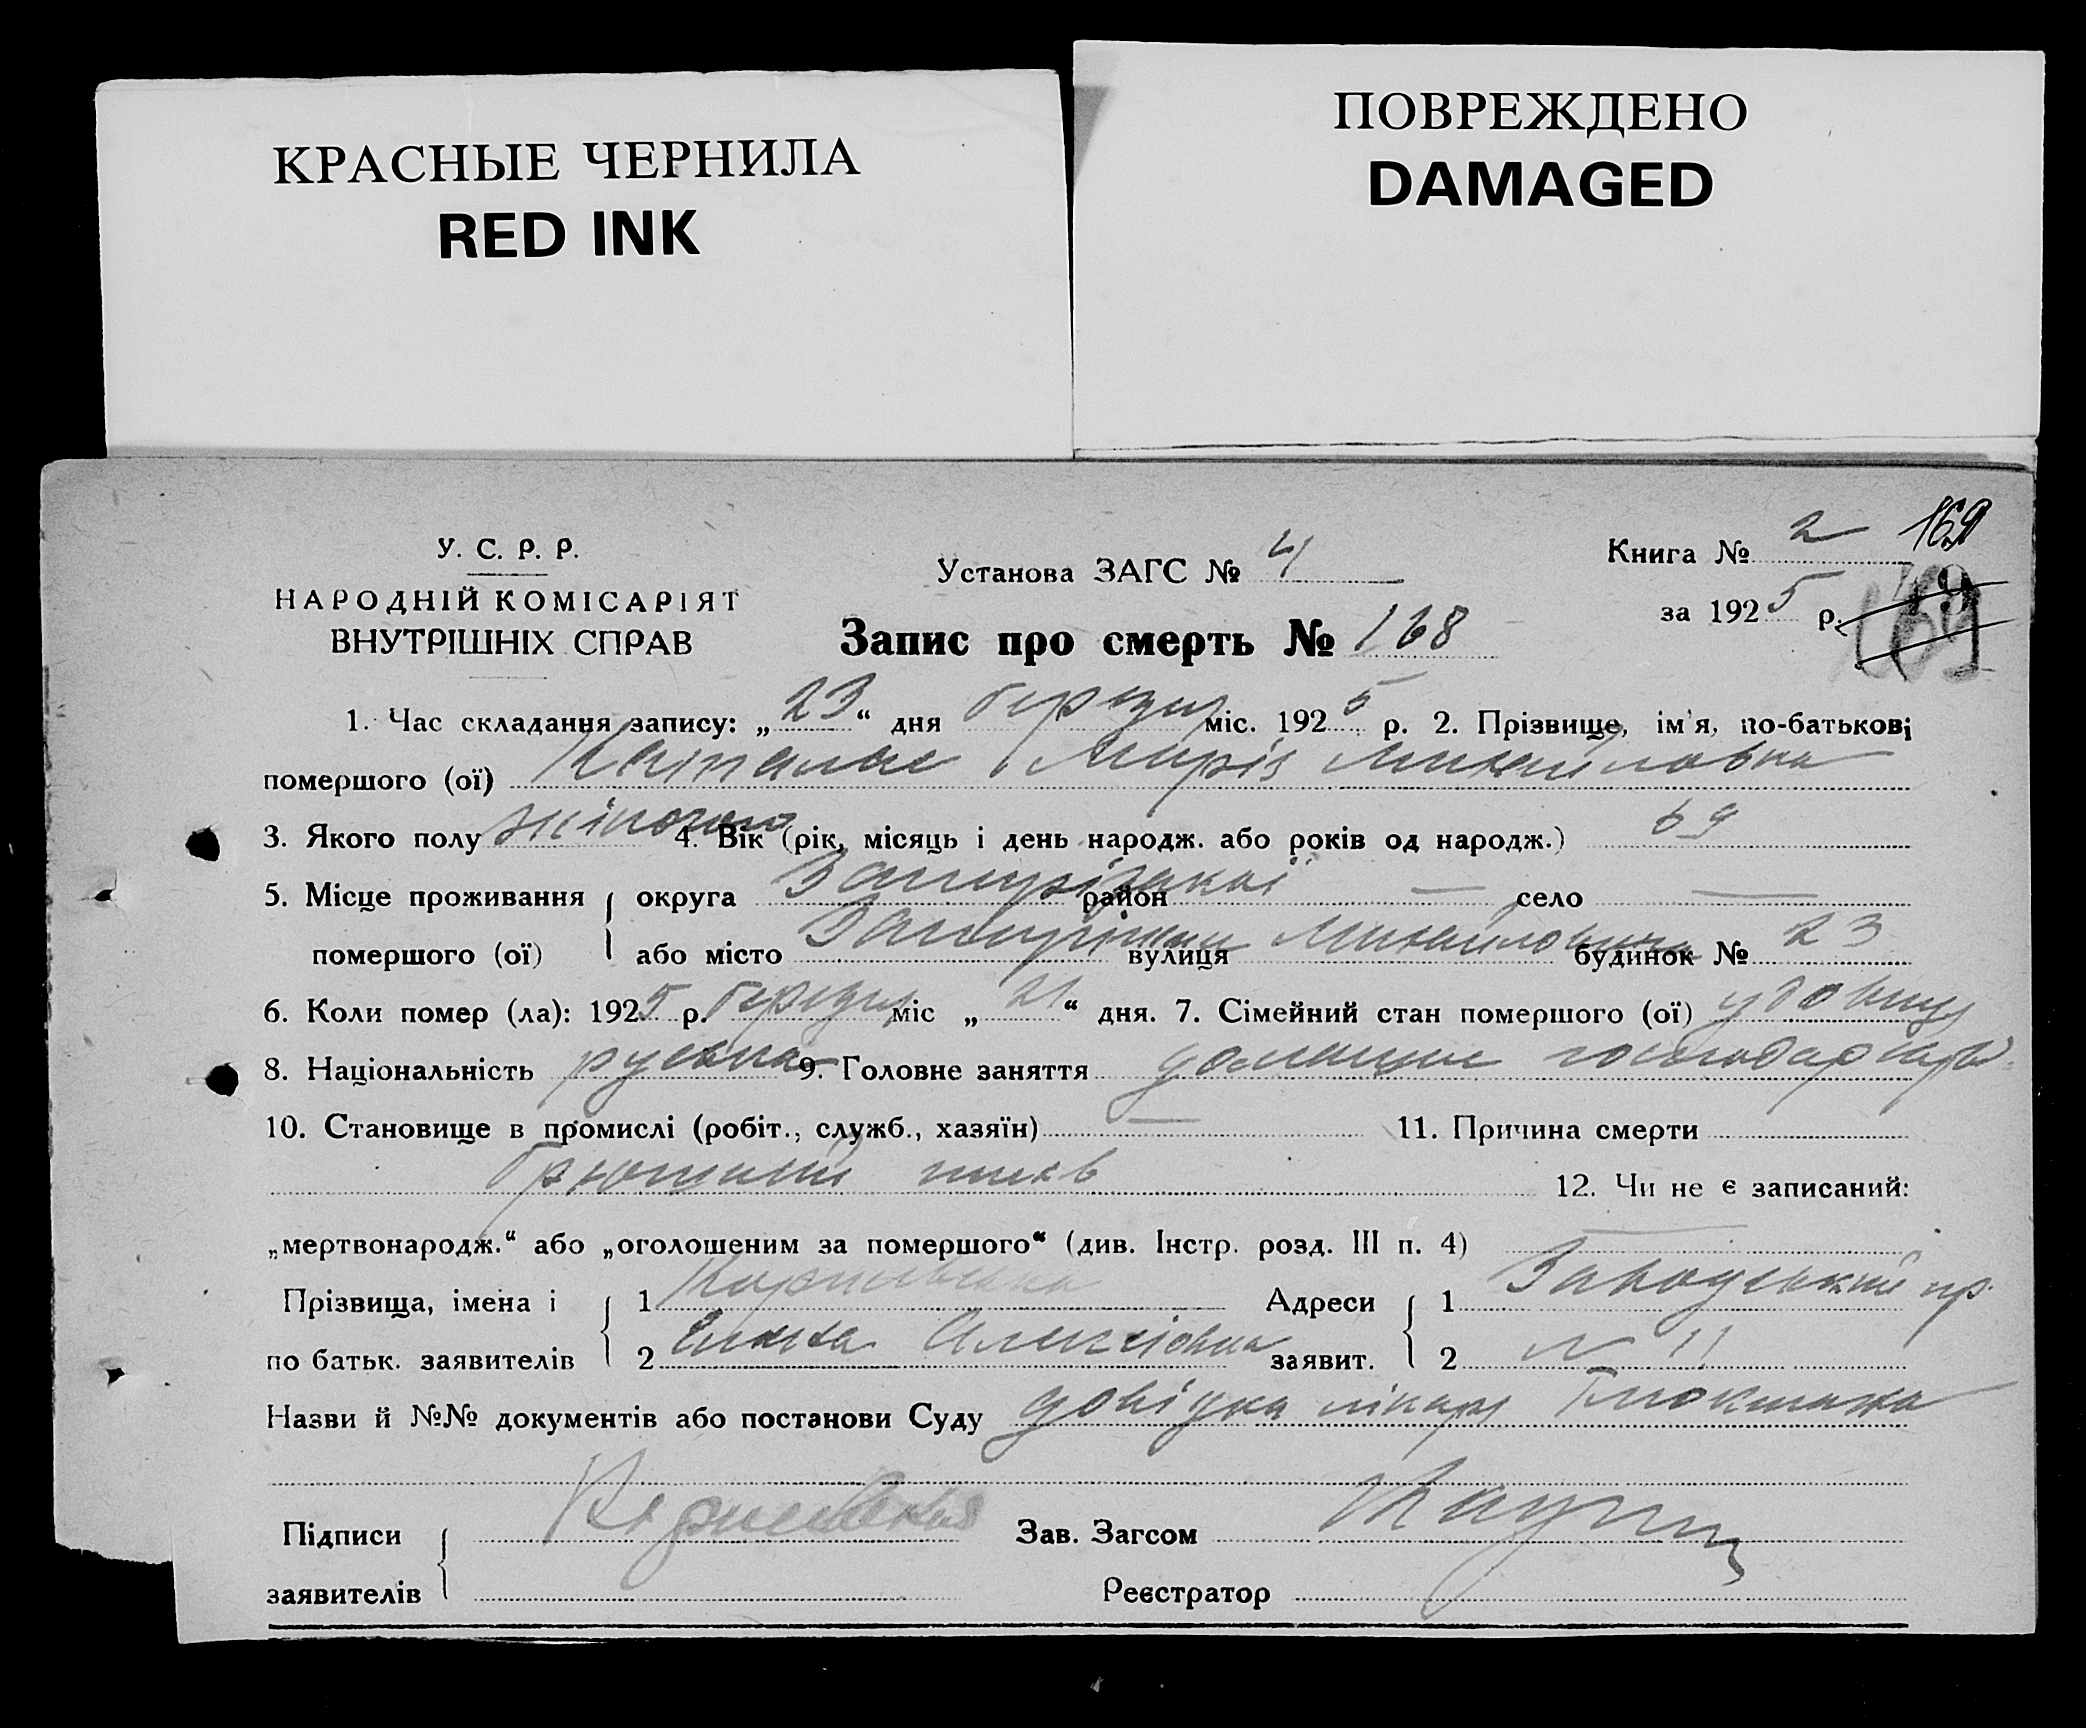 КРАСНЫЕ ЧЕРНИЛА
RED INK
ПОВРЕЖДЕНО
DAMAGED
У. С. Р. Р.
НАРОДНІЙ КОМІСАРІЯТ
ВНУТРІШНІХ СПРАВ
Установа ЗАГС № 4
Книга № 2 169
за 1925 р. 169
Запис про смерть № 168
1. Час складання запису: „23“ дня березня міс. 1925 р. 2. Прізвище, ім'я, по-батькові
помершого (ої) Марія Михайловна
3. Якого полу жіночого 4. Вік (рік, місяць і день народж. або років од народж.) 69
5. Місце проживання округа Запорізької район — село —
помершого (ої) або місто Запоріжжя вулиця будинок № 23
6. Коли помер (ла): 1925 р. березня міс „21“ дня. 7. Сімейний стан помершого (ої) удовиця
8. Національність руська 9. Головне заняття домашнє господарство
10. Становище в промислі (робіт., служб., хазяїн) — 11. Причина смерти
брюшний тиф 12. Чи не є записаний:
„мертвонародж.“ або „оголошеним за помершого“ (див. Інстр. розд. III п. 4) —
Прізвища, імена і 1 Адреси 1
по батьк. заявителів 2 Олексієвна заявит. 2 № 11
Назви й №№ документів або постанови Суду довідка лікаря
Підписи Зав. Загсом
заявителів Реєстратор